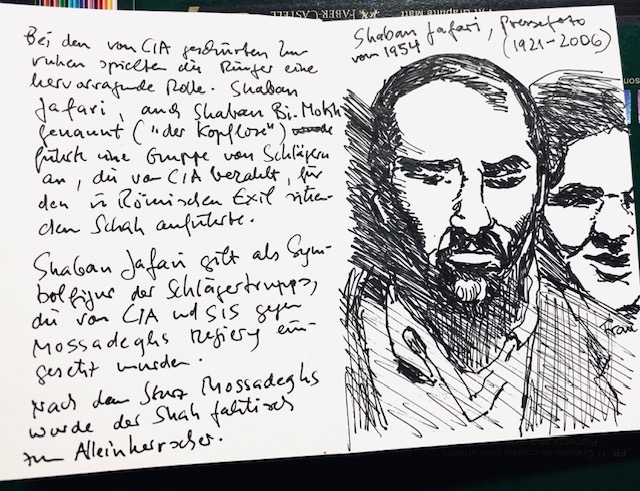 Bei den von CIA geschürten Un-
ruhen spielten die Ringer eine
hervorragende Rolle. Shaban
Jafari, auch Shaban Bi-Mokh
genannt ("der Kopflose") wurde
führte eine Gruppe von Schlägern
an, die von CIA bezahlt, für
den in Römischen Exil sitzen
den Schah anführte.
Shaban Jafari gilt als Sym-
bolfigur der Schlägertrupps,
die von CIA und SIS gegen
Mossadeghs Regierg ein-
gesetzt wurden.
Nach dem Sturz Mossadeghs
wurde der Shah faktisch
zum Alleinherrscher.
Shaban Jafari, Pressefoto
von 1954 (1921-2006)
Frau
FABER-CASTELL